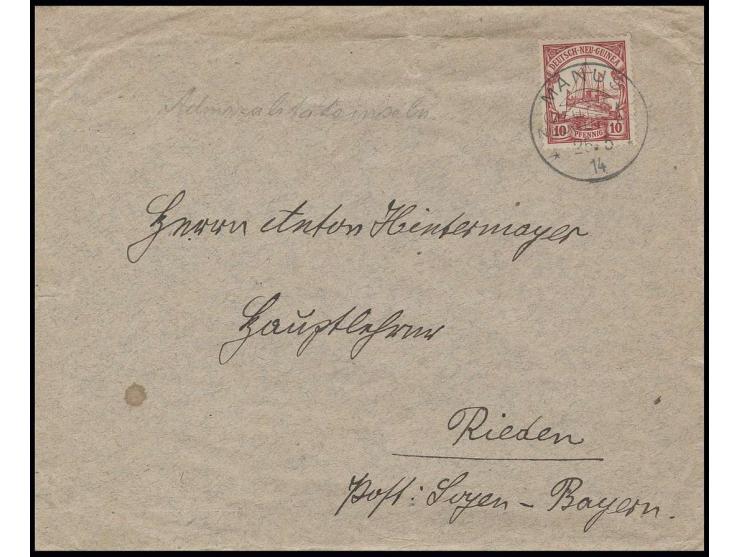 DEUTSCH-NEU-GUINEA
10 PFENNIG 10
MANUS
26.5
14
Admiralitätsinseln
Herrn Anton Hintermayer
Hauptlehrer
Rieden
Post: Soyen - Bayern.